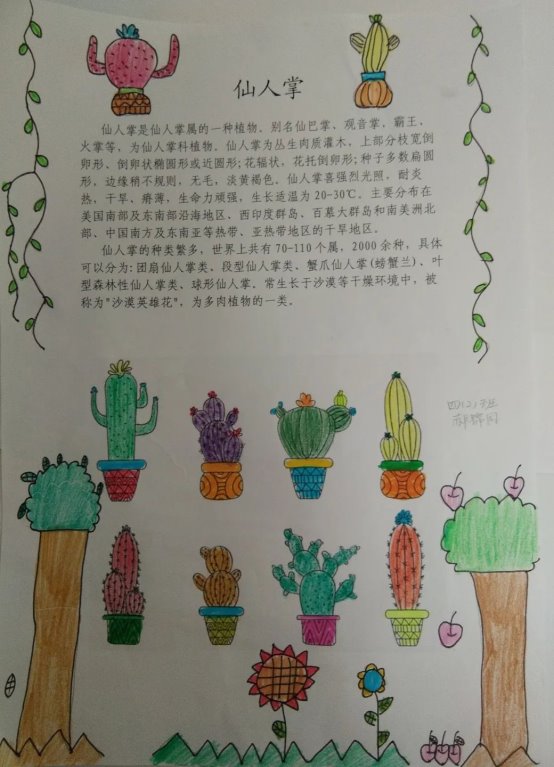 仙人掌
仙人掌是仙人掌属的一种植物。别名仙巴掌、观音掌、霸王、
火掌等，为仙人掌科植物。仙人掌为丛生肉质灌木，上部分枝宽倒
卵形、倒卵状椭圆形或近圆形；花辐状，花托倒卵形；种子多数扁圆
形，边缘稍不规则，无毛，淡黄褐色。仙人掌喜强烈光照，耐炎
热，干旱、瘠薄，生命力顽强，生长适温为20-30℃。主要分布在
美国南部及东南部沿海地区、西印度群岛、百慕大群岛和南美洲北
部、中国南方及东南亚等热带、亚热带地区的干旱地区。
仙人掌的种类繁多，世界上共有70-110个属，2000余种，具体
可以分为：团扇仙人掌类、段型仙人掌类、蟹爪仙人掌(螃蟹兰)、叶
型森林性仙人掌类、球形仙人掌。常生长于沙漠等干燥环境中，被
称为"沙漠英雄花"，为多肉植物的一类。
四(2)班